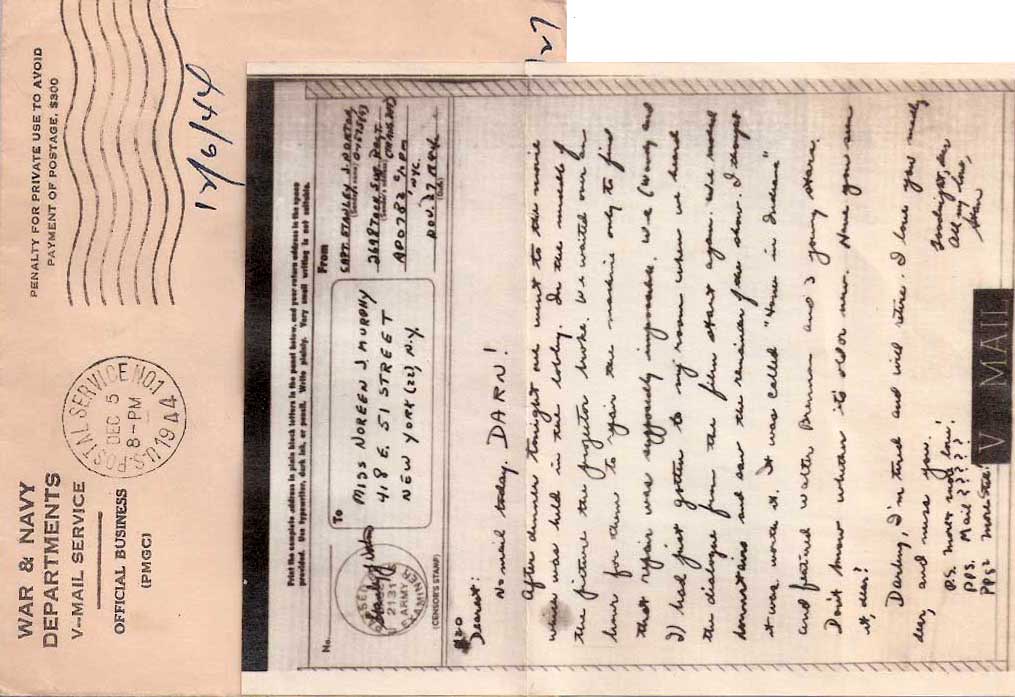 WAR & NAVY
DEPARTMENTS
V-MAIL SERVICE
OFFICIAL BUSINESS
(PMGC)
U.S. POSTAL SERVICE NO.1
DEC 5
8-PM
1944
PENALTY FOR PRIVATE USE TO AVOID
PAYMENT OF POSTAGE, $300
12/6/44
127
Print the complete address in plain block letters in the panel below, and your return address in the space
provided. Use typewriter, dark ink, or pencil. Write plainly. Very small writing is not suitable.
No.
ARMY
EXAMINER
(CENSOR'S STAMP)
To
MISS NOREEN J. MURPHY
418 E. 51 STREET
NEW YORK (22), N.Y.
From
CAPT. STANLEY J.
(Sender's name)
APO 782 c/o PM
NYC.
NOV. 27 1944
(Date)
#20
Dearest:
No mail today. DARN!
After dinner tonight we went to the movie
which was held in the lobby. In the middle of
the picture the projector broke. We waited over an
hour for them to repair the machine only to find
that repair was supposedly impossible. We (Woody and
I) had just gotten to my room when we heard
the dialogue from the film start again. We raced
downstairs and saw the remainder of the show. I thought
it was worth it. It was called "Home in Indiana"
and featured Walter Brennan and 3 young stars.
Don't know whether its old or new. Have you seen
it, dear?
Darling, I'm tired and will retire. I love you madly,
dear, and miss you.
Goodnight, dear
All my love,
Stan
P.S. more and love!
PPS. Mail????
V MAIL